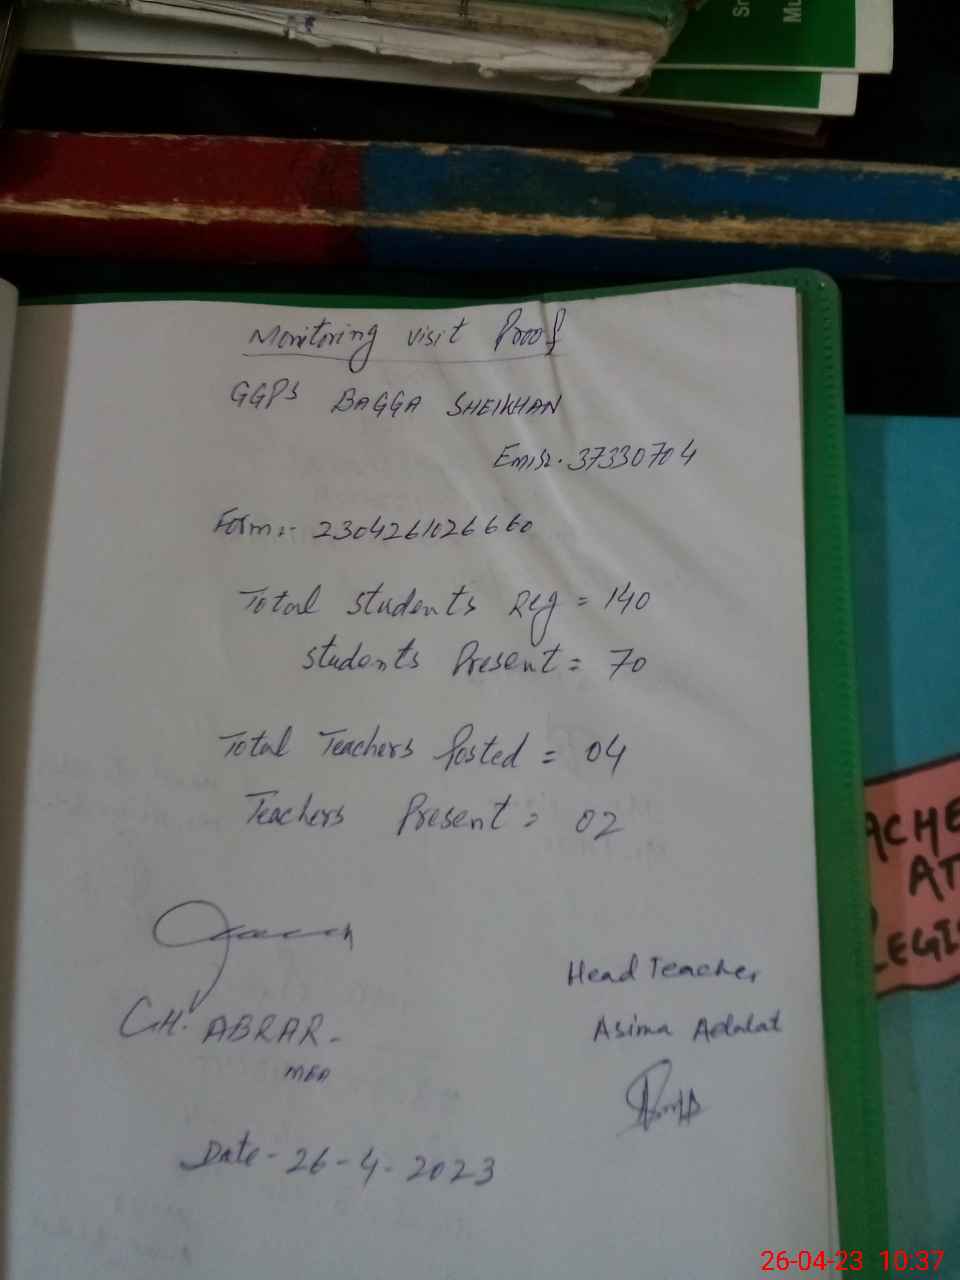 Sr
Mu
Monitoring visit Proof
GGPS BAGGA SHEIKHAN
Emis:. 37330704
Form:- 2304261026660
Total students Reg = 140
students Present = 70
Total Teachers Posted = 04
Teachers Present = 02
CH. ABRAR-
MEA
Head Teacher
Asima Adalat
Date- 26-4-2023
ACHE
AT
EGI
26-04-23 10:37